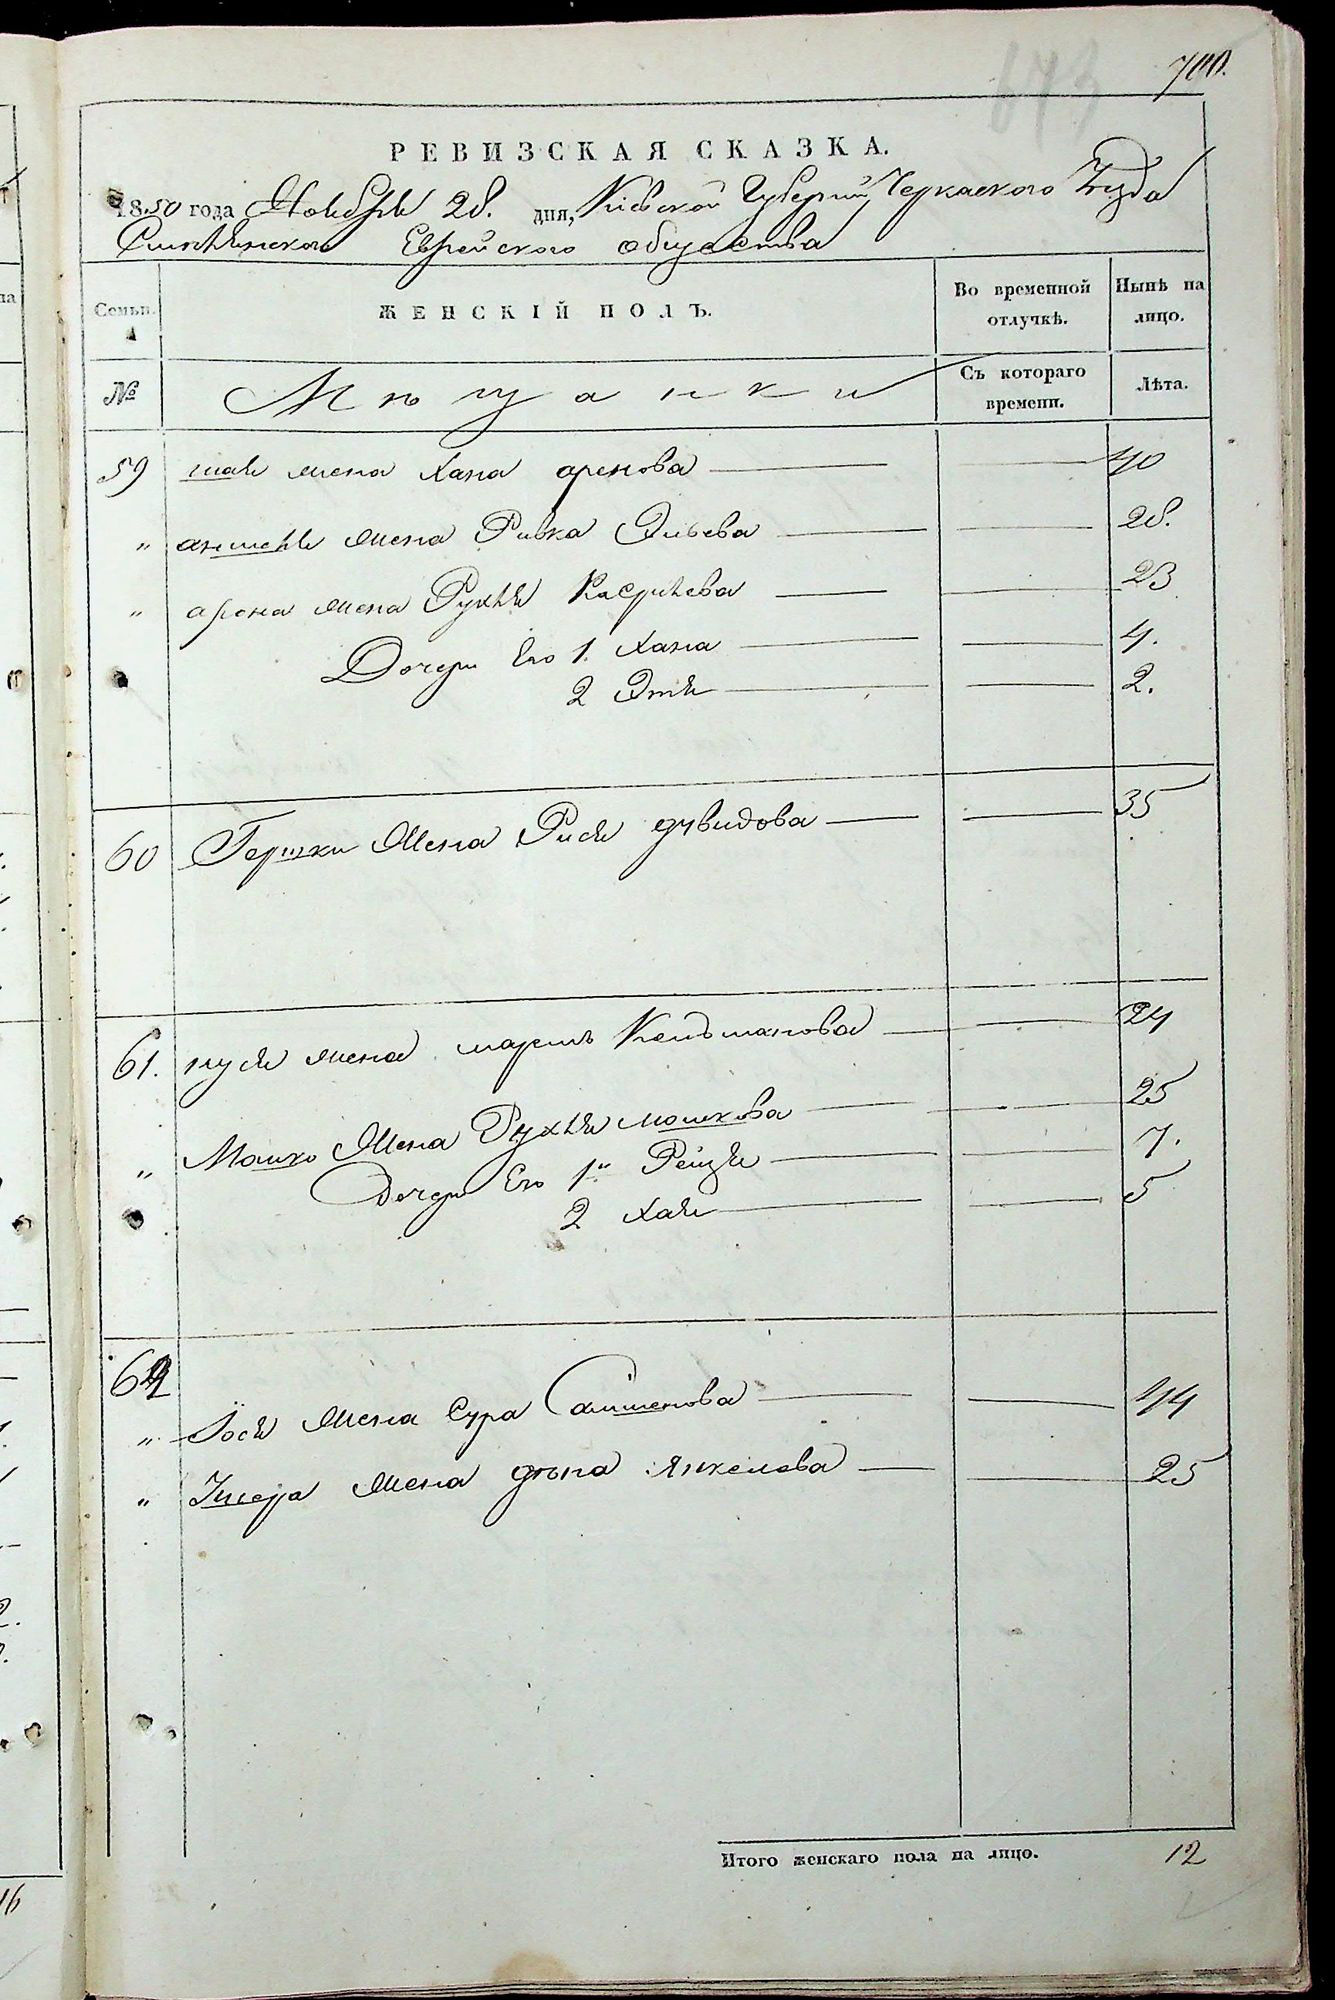 700.
673
РЕВИЗСКАЯ СКАЗКА.
1850 года Ноября 28. дня, Кіевской Губерніи, Черкаского Уезда
Смѣлянского Еврейского общества
Семьи. ЖЕНСКІЙ ПОЛЪ. Во временной отлучкѣ. Нынѣ на лицо.
№ Мѣщанки Съ котораго времени. Лѣта.
59 шаи жена Хана аронова 40
" аншеля жена Ривка Эльева 28.
" арона жена Рухля Касрилева 23
Дочери Его 1. Хана 4.
2 Этя 2.
60 Гершки Жена Рися дувидова 35
61. нуся жена Кельманова 24
" Мошко Жена Рухля мошкова 25
Дочери Его 1" Рейзя 7.
2 Хая 5
62
" Іося Жена Сура 44
" Жена янкелева 25
Итого женскаго пола на лицо. 12
16